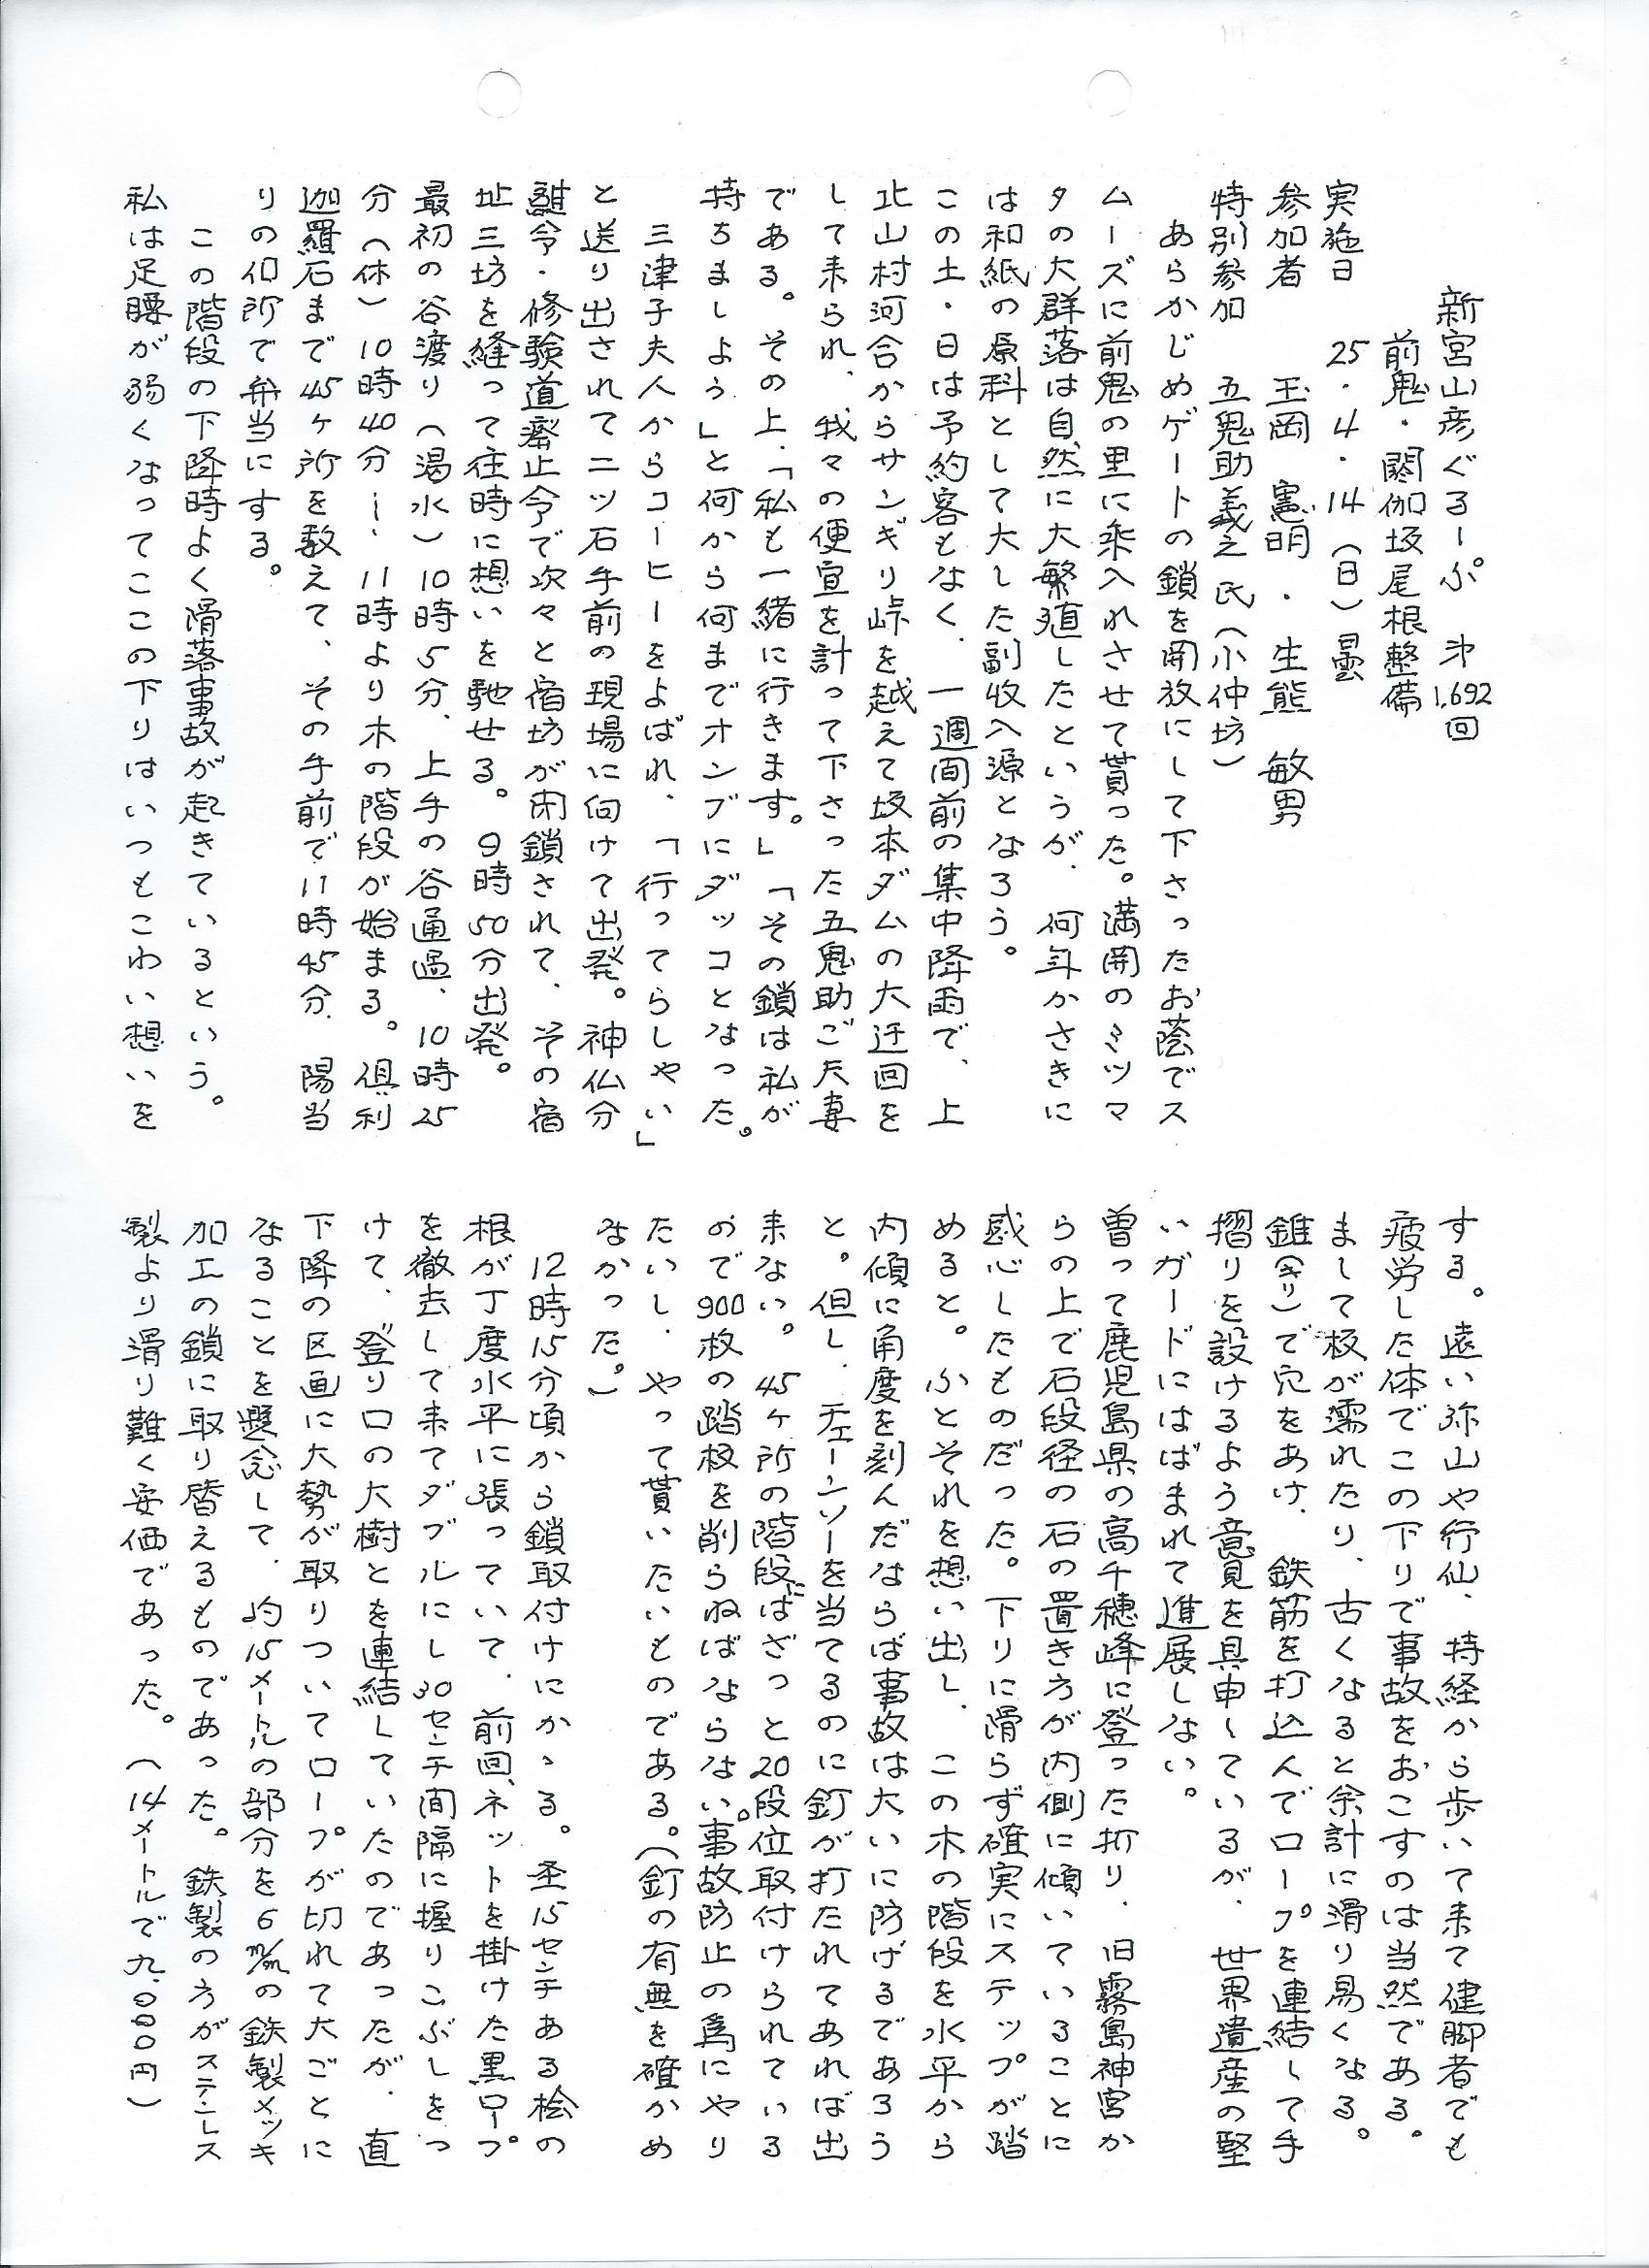 新宮山彦ぐるーぷ 第1,692回
前鬼・閼伽坂尾根整備
実施日 25・4・14（日）曇
参加者 玉岡 憲明 ・ 生熊 敏男
特別参加 五鬼助義之氏（小仲坊）
あらかじめゲートの鎖を開放にして下さったお蔭でス
ムーズに前鬼の里に乗入れさせて貰った。満開のミツマ
タの大群落は自然に大繁殖したというが、何年かさきに
は和紙の原料として大した副収入源となろう。
この土・日は予約客もなく、一週間前の集中降雨で、上
北山村河合からサンギリ峠を越えて坂本ダムの大迂回を
して来られ、我々の便宜を計って下さった五鬼助ご夫妻
である。その上、「私も一緒に行きます。」「その鎖は私が
持ちましよう」と何から何までオンブにダッコとなった。
三津子夫人からコーヒーをよばれ、「行ってらしゃい」
と送り出されて二ッ石手前の現場に向けて出発。神仏分
離令・修験道廃止令で次々と宿坊が閉鎖されて、その宿
址三坊を縫って往時に想いを馳せる。9時50分出発。
最初の谷渡り（渇水）10時5分、上手の谷通過、10時25
分（休）10時40分－、11時より木の階段が始まる。倶利
迦羅石まで45ヶ所を数えて、その手前で11時45分、陽当
りの個所で弁当にする。
この階段の下降時よく滑落事故が起きているという。
私は足腰が弱くなってここの下りはいつもこわい想いを
する。遠い弥山や行仙、持経から歩いて来て健脚者でも
疲労した体でこの下りで事故をおこすのは当然である。
まして板が濡れたり、古くなると余計に滑り易くなる。
錐（キリ）で穴をあけ、鉄筋を打込んでロープを連結して手
摺りを設けるよう意見を具申しているが、世界遺産の堅
いガードにはばまれて進展しない。
曽って鹿児島県の高千穂峰に登った折り、旧霧島神宮か
らの上で石段径の石の置き方が内側に傾いていることに
感心したものだった。下りに滑らず確実にステップが踏
めると。ふとそれを想い出し、この木の階段を水平から
内傾に角度を刻んだならば事故は大いに防げるであろう
と。但し、チェーンソーを当てるのに釘が打たれてあれば出
来ない。45ヶ所の階段にはざっと20段位取付けられている
ので900枚の踏板を削らねばならない。事故防止の為にやり
たいし、やって貰いたいものである。（釘の有無を確かめ
なかった。）
12時15分頃から鎖取付けにかゝる。径15センチある桧の
根が丁度水平に張っていて、前回、ネットを掛けた黒ロープ
を徹去して来てダブルにし30センチ間隔に握りこぶしをつ
けて、登り口の大樹とを連結していたのであったが、直
下降の区画に大勢が取りついてロープが切れて大ごとに
なることを懸念して、約15メートルの部分を6m/mの鉄製メッキ
加工の鎖に取り替えるものであった。鉄製の方がステンレス
製より滑り難く安価であった。（14メートルで九、000円）